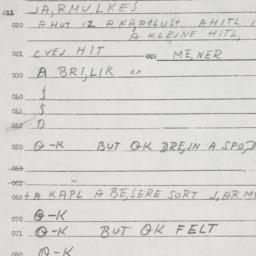 011 JA,RMULKES
020 A HUT IZ A KAPELUSH. A HITL I
A KLEJNE HITL,
021 CVEJ HIT 022 ME,NER
030 A BRI,LIK xx
040
041
042 0
050 O-K BUT OK DRE,IN A SPO,D
051
053
060 + A KAPL A BE,SERE SORT J,ARMU
070 O-K
071 O-K BUT OK FELT
080 O-K